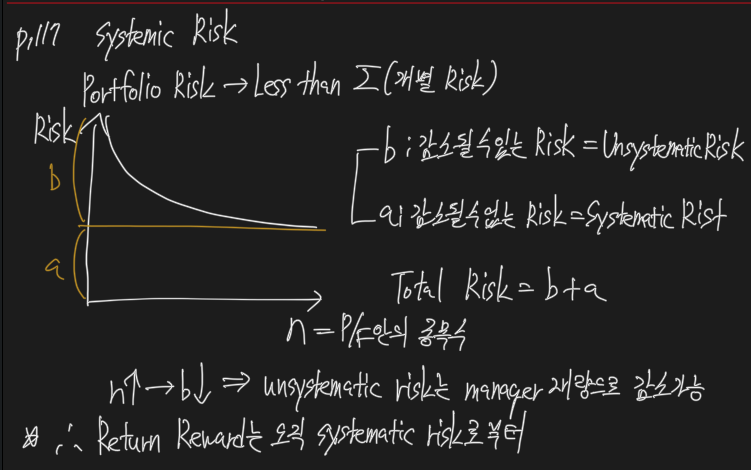 p.117 Systemic Risk
Portfolio Risk → Less than Σ(개별 Risk)
Risk
b
a
b : 감소될수있는 Risk = Unsystematic Risk
a : 감소될수없는 Risk = Systematic Rist
Total Risk = b + a
n = P/F안의 종목수
n↑ → b↓ ⇒ unsystematic risk는 manager 재량으로 감소가능
※ ∴ Return Reward는 오직 systematic risk로부터